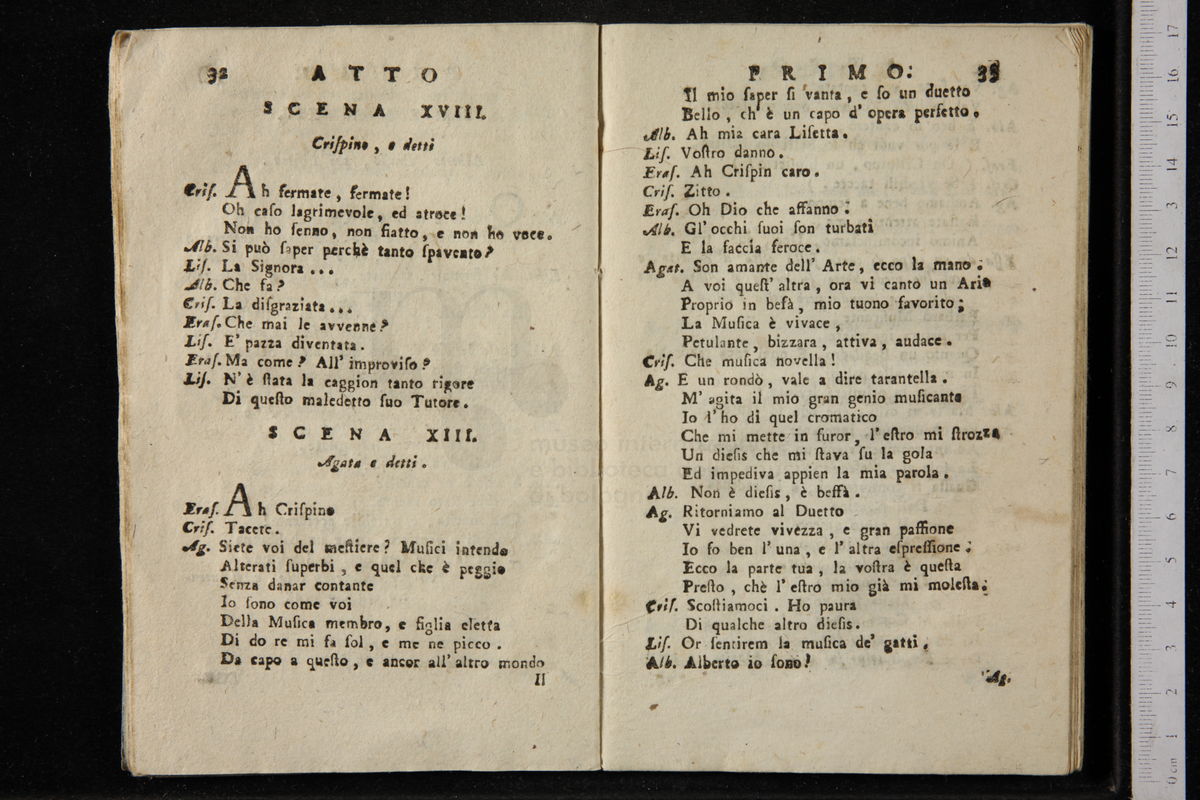 32 ATTO
SCENA XVIII.
Criſpino, e detti
Criſ. Ah fermate, fermate!
Oh caſo lagrimevole, ed atroce!
Non ho ſenno, non fiatto, e non ho voce.
Alb. Si può ſaper perchè tanto ſpavento?
Liſ. La Signora...
Alb. Che fa?
Criſ. La diſgraziata...
Eraſ. Che mai le avvenne?
Liſ. E' pazza diventata.
Eraſ. Ma come? All' improviſo?
Liſ. N' è ſtata la caggion tanto rigore
Di queſto maledetto ſuo Tutore.
SCENA XIII.
Agata e detti.
Eraſ. Ah Criſpino
Criſ. Tacete.
Ag. Siete voi del meſtiere? Muſici intendo
Alterati ſuperbi, e quel che è peggio
Senza danar contante
Io ſono come voi
Della Muſica membro, e figlia eletta
Di do re mi fa ſol, e me ne picco.
Da capo a queſto, e ancor all' altro mondo
Il
PRIMO: 33
Il mio ſaper ſi vanta, e ſo un duetto
Bello, ch' è un capo d' opera perfetto.
Alb. Ah mia cara Liſetta.
Liſ. Voſtro danno.
Eraſ. Ah Criſpin caro.
Criſ. Zitto.
Eraſ. Oh Dio che affanno:
Alb. Gl' occhi ſuoi ſon turbati
E la faccia feroce.
Agat. Son amante dell' Arte, ecco la mano:
A voi queſt' altra, ora vi canto un Aria
Proprio in befà, mio tuono favorito;
La Muſica è vivace,
Petulante, bizzara, attiva, audace.
Criſ. Che muſica novella!
Ag. E un rondò, vale a dire tarantella.
M' agita il mio gran genio muſicante
Io l' ho di quel cromatico
Che mi mette in furor, l' eſtro mi ſtrozza
Un dieſis che mi ſtava ſu la gola
Ed impediva appien la mia parola.
Alb. Non è dieſis, è beffà.
Ag. Ritorniamo al Duetto
Vi vedrete vivezza, e gran paſſione
Io fo ben l' una, e l' altra eſpreſſione:
Ecco la parte tua, la voſtra è queſta
Preſto, chè l' eſtro mio già mi moleſta:
Criſ. Scoſtiamoci. Ho paura
Di qualche altro dieſis.
Liſ. Or ſentirem la muſica de' gatti.
Alb. Alberto io ſono!
Ag.